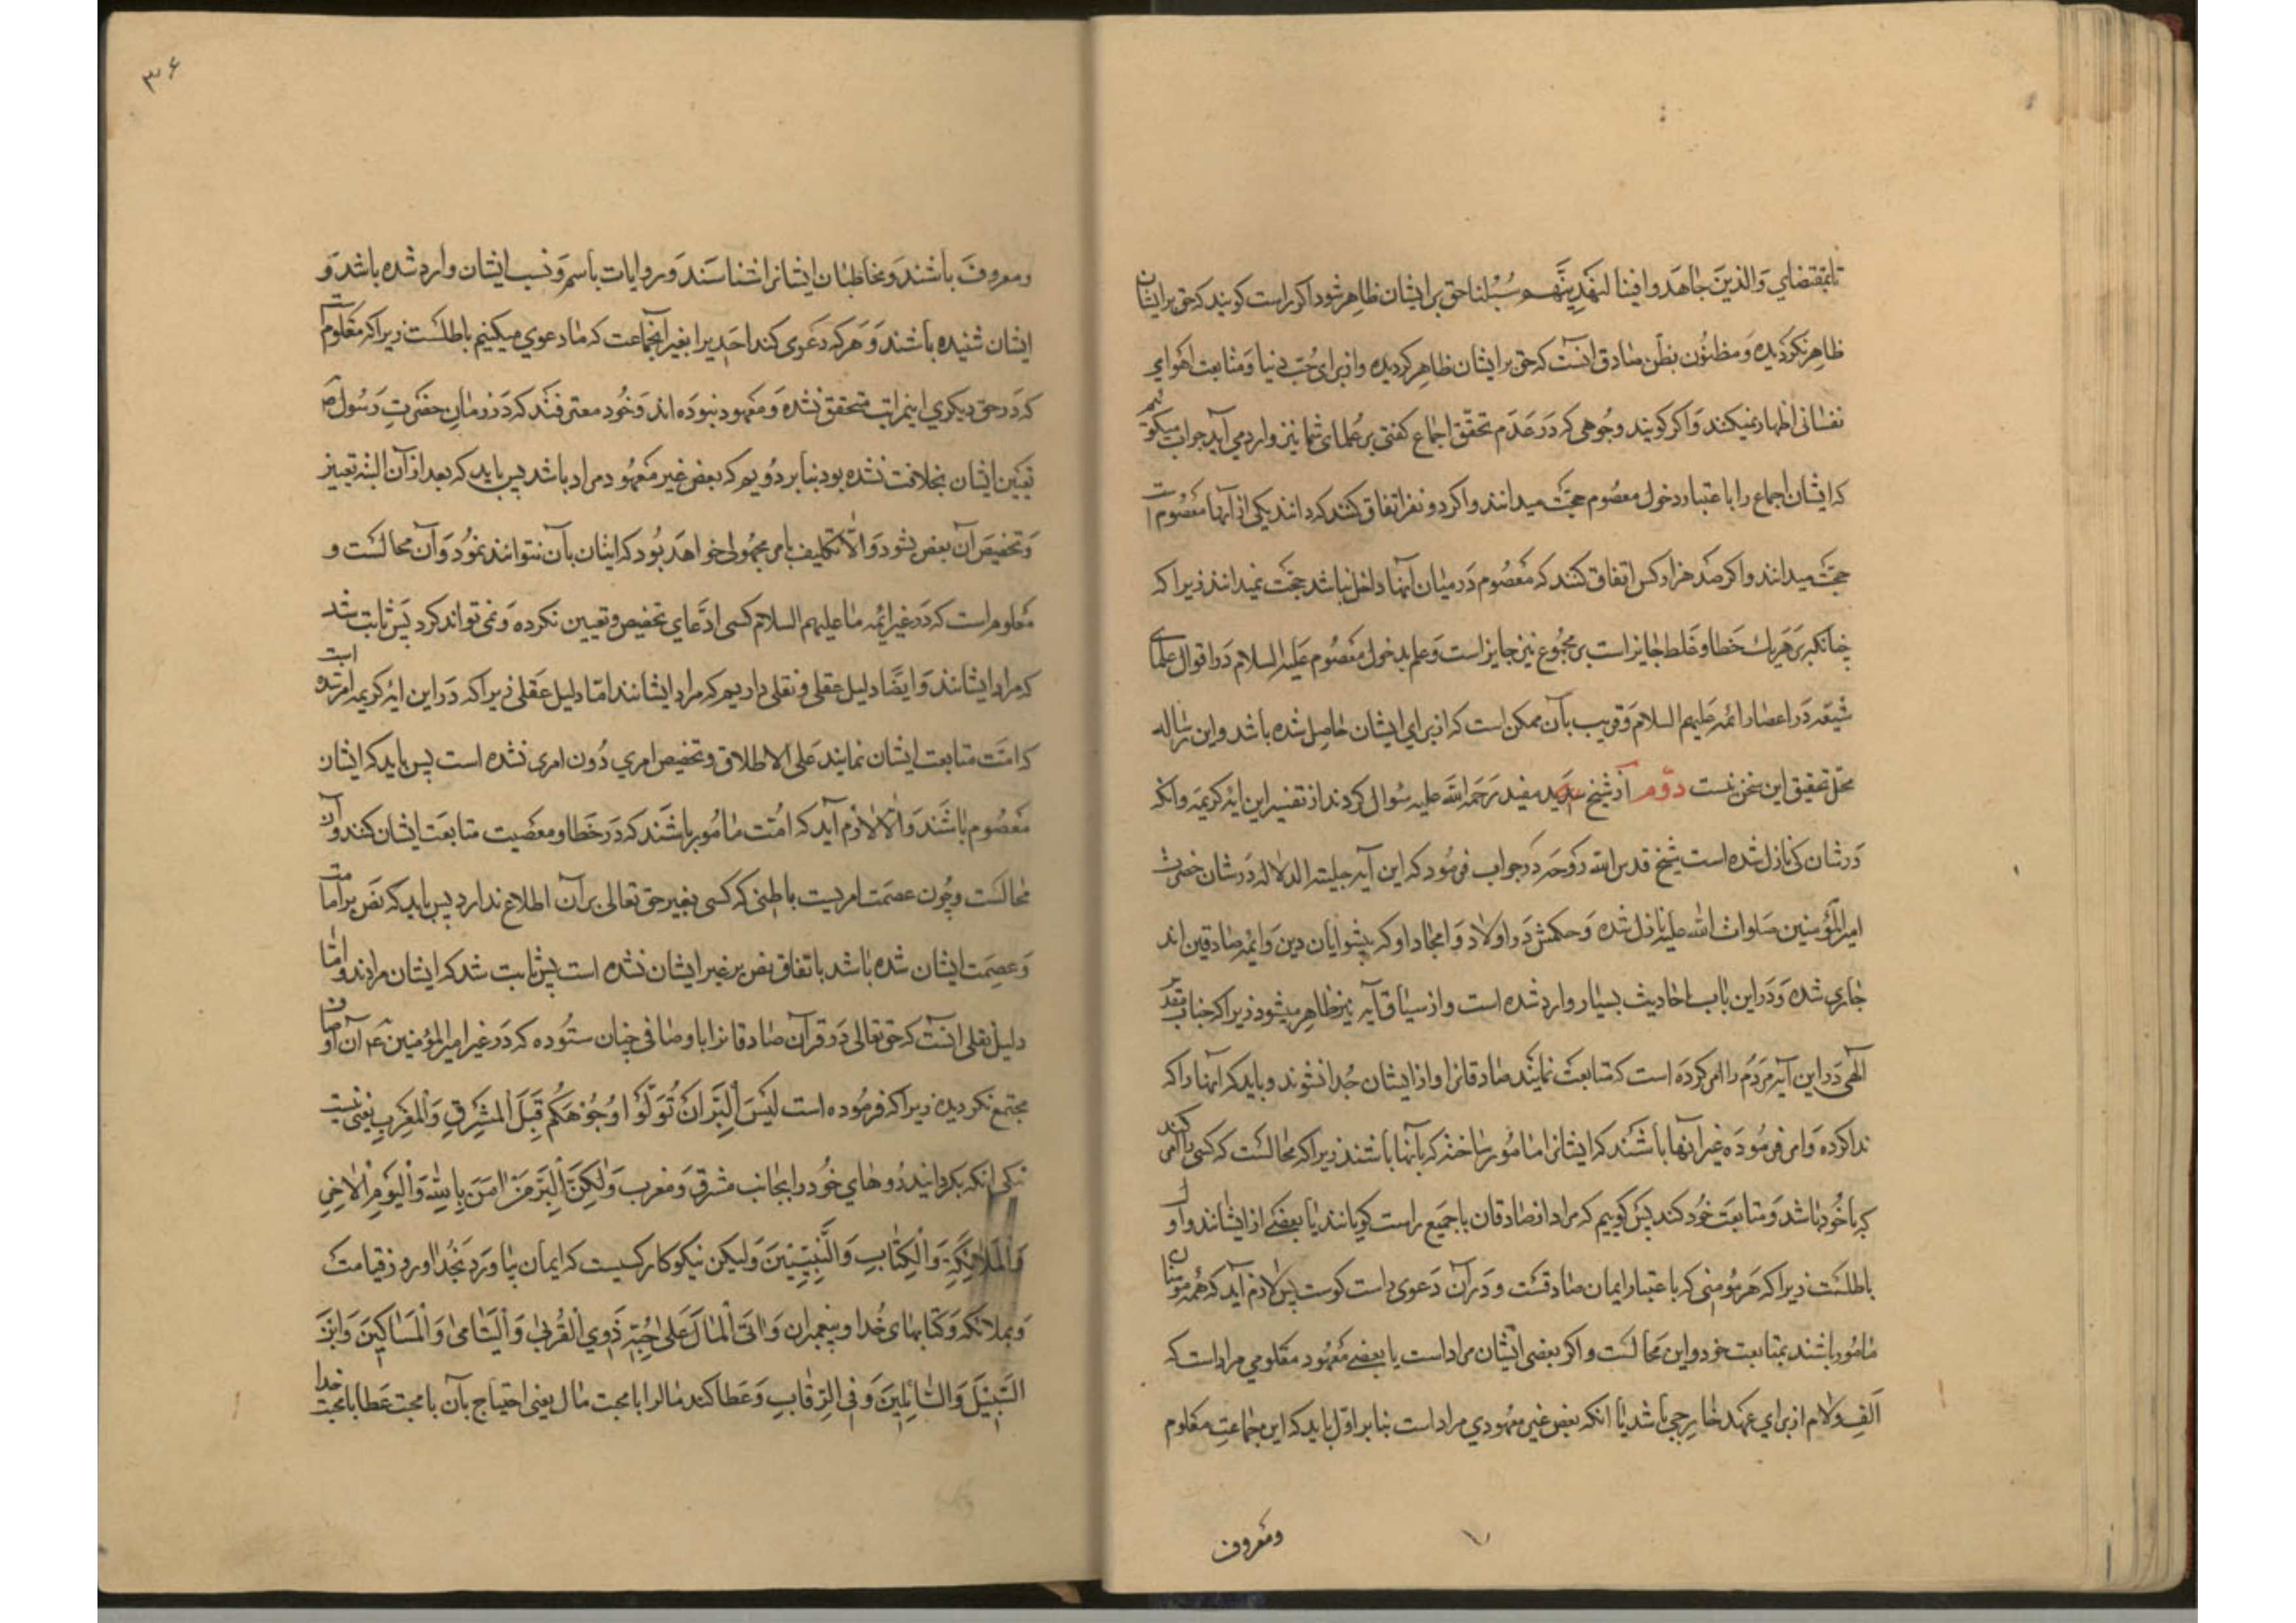 تابمقتضاي وَالذينَ جاهَدوا فينا لنهدِينَّهم سُبُلنا حق بر ايشان ظاهر شود اكر راست كويند كه حق بر ايشان
ظاهر نكرديده وَ مظنوُن بظن صادق انست كه حق بر ايشان ظاهر كرديده و از براي حُب دنيا وَ متابعت اهواي
نفسانى اظهار نميكنند وَ اكر كويند وجوهى كه دَر عَدَم تحقق اجماع كفتى بر عُلماى شما نيز وارد مي آيد جواب ميكوئيم
كه ايشان اجماع را باعتبار دخول معصوم حجّت ميدانند و اكر دو نفر اتفاق كنند كه دانند يكى از آنها معصُوم است
حجّت ميدانند و اكر صَد هزار كس اتفاق كنند كه مَعصُوم دَر ميان آنها داخل نباشد حجّت نميدانند زيرا كه
چنانكه بر هَر يك خَطا و غَلط جايز است بر مجموُع نيز جايز است وَ علم بدخول معصُوم عَليه السلام دَر اقوال علماى
شيعَه دَر اعصار ائمه عليهم السلام وَ قريب بآن ممكن است كه از براي ايشان حاصِل شده باشد و اين رساله
محل تحقيق اين سخن نيست دوّم از شيخ سَديد مفيد رَحمه الله عليه سُوال كردند از تفسير اين ايه كريمَه و انكه
دَر شان كى نازل شده است شيخ قدس الله رُوحَه دَر جواب فرموُد كه اين آيه جليله الدلاله دَر شان حضرت
امير المُؤمنين صَلوات الله عليه نازل شده وَ حكمش دَر اولاد وَ امجاد او كه پيشوايان دين وَ ايمه صادقين اند
جاري شده وَ دَر اين باب احاديث بسيار وارد شده است و از سياق آيه نيز ظاهر ميشود زيرا كه جناب مقدس
الهى دَر اين آيه مَردُم را امر كرده است كه متابعت نمايند صادقانرا و از ايشان جُدا نشوند و بايد كه آنها را كه
ندا كرده وَ امر فرموُدَه غير آنها باشَند كه ايشانرا مامُور ساخته كه بآنها باشند زيرا كه محالست كه كسى را امر كنند
كه با خُود باشد وَ متابعَت خُود كند پَس كوييم كه مراد از صادقان يا جَميع راست كويانند يا بعضے از ايشانند و اول
باطلست زيرا كه هَر مؤمنى كه باعتبار ايمان صادقست و دَر آن دَعوى راست كوست پس لازم آيد كه همه مؤمنان
مامُور باشند بمتابعت خود و اين محالست و اكر بعضى ايشان مراد است يا بعضے مَعهُود معلومي مراد است كه
الَف و لام از براي عَهد خارِجي باشد يا انكه بعض غير معهُودي مراد است بنابر اوّل بايد كه اين جماعتِ معلوم
ومعروف
٣۶
ومعروفَ باشند وَ مخاطبان ايشانرا شناسند وَ در روايات باسم وَ نسب ايشان وارد شده باشد وَ
ايشان شنيده باشند وَ هَر كه دَعوى كند احَديرا بغير آنجماعت كه ما دعوي ميكنيم باطلست زيرا كه معلوم است
كه دَر حق ديكري اينمراتب متحقق نشده وَ معهود نبوده اند وَ خُود معترفند كه دَر زمانِ حضَرتِ رَسُول ص
تعيين ايشان بخلافت نشده بود بنا بر دُويم كه بعض غير مَعهُود مراد باشد پس بايد كه بعد از آن البته تعيين
وَ تخصيص آن بعض بشود وَ الّا تكليف بامر مجهُولى خواهد بُود كه ايشان بآن نتوانند نمُود وَ آن محالست و
مَعلوم است كه دَر غير ائمه ما عليهم السلام كسى ادّعاي تخصيص و تعيين نكرده وَ نمى تواند كرد پَس ثابت شد
كه مراد ايشانند وَ ايضًا دليل عقلى و نقلى داريم كه مراد ايشانند امّا دليل عقلى زيرا كه دَر اين ايه كريمه امر شده است
كه امّت متابعت ايشان نمايند عَلى الاطلاق و تخصيص امري دُون امرى نشده است پس بايد كه ايشان
معصُوم باشَند وَ الّا لازم آيد كه امُّت مامُور باشَند كه دَر خَطا و معصيت متابعَت ايشان كنند و آن
محالست و چُون عصمَت امريست باطنى كه كسى بغير حق تعالى بر آن اطلاع ندارد پس بايد كه نَص بر امامت
وَ عصِمَت ايشان شده باشد باتفاق نص بر غير ايشان نشده است پَس ثابت شد كه ايشان مرادند و امّا
دليل نقلى انست كه حق تعالى دَر قرآن صادقانرا باوصافى چنان ستُوده كه دَر غير امير المؤمنين ع آن اوصاف
مجتمع نكرديده زيرا كه فرمُوده است ليَسَ البِّرَ اَن تُوَلّوُا وُجوُهَكُم قِبَلَ المَشرِقِ وَالمَغرِبِ يعنى نيست
نيكى انكه بكردانيد رُوهاي خُود را بجانب مشرق وَ مغرب وَلكِنَّ البِّرَ مَنْ امَنَ بِاللهِ وَاليَومِ الاخِرِ
وَالمَلائِكَةِ وَالكِتابِ وَالنَّبِيّينَ وَليكن نيكوكار كسيست كه ايمان بياورد بخُدا و روز قيامت
وَ بملائكه وَ كتابهاى خُدا و پيغمبران وَاتَى المالَ عَلى حُبِّه ذَوِي القُربى وَاليَتامى وَالمَساكينَ وَابنَ
السَّبيلَ وَالسّائِلينَ وَفِي الرِّقابِ وَ عَطا كند مالرا با محبت مال يعنى احتياج بآن با محبت عَطا با محبت خدا